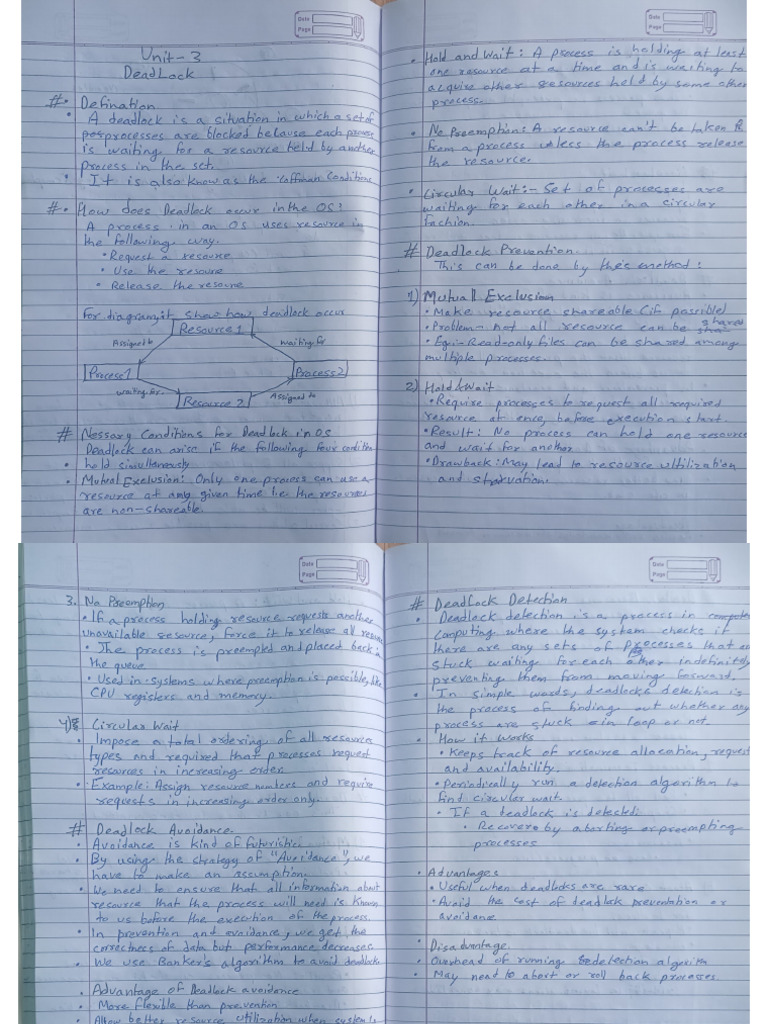 Date
Page
Unit-3
DeadLock
#. Defination
• A deadlock is a situation in which a set of
processes are blocked because each process
is waiting for a resource held by another
process in the set.
• It is also know as the "Coffman Conditions
#. How does Deadlock occur in the OS:
A process in an OS uses resource in
the following way.
• Request a resource
• Use the resource
• Release the resource
For diagram, it show how deadlock occur
Resource 1
Assigned to
waiting for
Process 1
Process 2
waiting for
Assigned to
Resource 2
# Nessary Conditions for Deadlock in OS
Deadlock can arise if the following four condition
• hold simultaneously
• Mutual Exclusion: Only one process can use a
resource at any given time i.e. the resources
are non-shareable.
Date
Page
• Hold and Wait: A process is holding at least
one resource at a time and is waiting to
acquire other resources held by some other
process.
• No Preemption: A resource can't be taken
from a process unless the process release
the resource.
• Circular Wait:- Set of processes are
waiting for each other in a circular
fashion.
# Deadlock Prevention.
This can be done by method:
1) Mutuall Exclusion
• Make resource shareable (if possible)
• Problem- not all resource can be shared
• Read-only files can be shared among
multiple processes.
2) Hold & Wait
• Require processes to request all required
resource at once, before execution start.
• Result: No process can hold one resource
and wait for another
• Drawback: May lead to resource ultilization
and starvation.
Date
Page
3. No Preemption
• If a process holding resource requests another
unavailable resource, force it to release all
• The process is preempted and placed back in
the queue
• Used in systems where preemption is possible, like
CPU registers and memory.
4) Circular Wait
• Impose a total ordering of all resources
types and required that processes request
resources in increasing order.
• Example: Assign resource numbers and require
requests in increasing order only.
# Deadlock Avoidance.
• Avoidance is kind of futuristic.
• By using the strategy of "Avoidance", we
have to make an assumption.
• We need to ensure that all information about
resource that the process will need is known
to us before the execution of the process.
• In prevention and avoidance, we get the
correctness of data but performance decreases
• We use Banker's algorithm to avoid deadlock
• Advantage of Deadlock avoidance
• More flexible than prevention
• Allow better resource utilization when system is
Date
Page
# Deadlock Detection
• Deadlock detection is a process in
computing where the system checks if
there are any sets of processes that are
stuck waiting for each other indefinitely
preventing them from moving forward.
• In simple words, deadlocks detection is
the process of finding out whether any
process are stuck in loop or not.
• How it works
• Keeps track of resource allocation, request
and availability.
• Periodically run a detection algorithm to
find circular wait.
• If a deadlock is detected:
• Recovers by aborting or preempting
processes
• Advantages
• Useful when deadlocks are rare
• Avoid the cost of deadlock preventation or
avoidance
• Disadvantage.
• Overhead of running detection algorithm
• May need to abort or roll back processes.